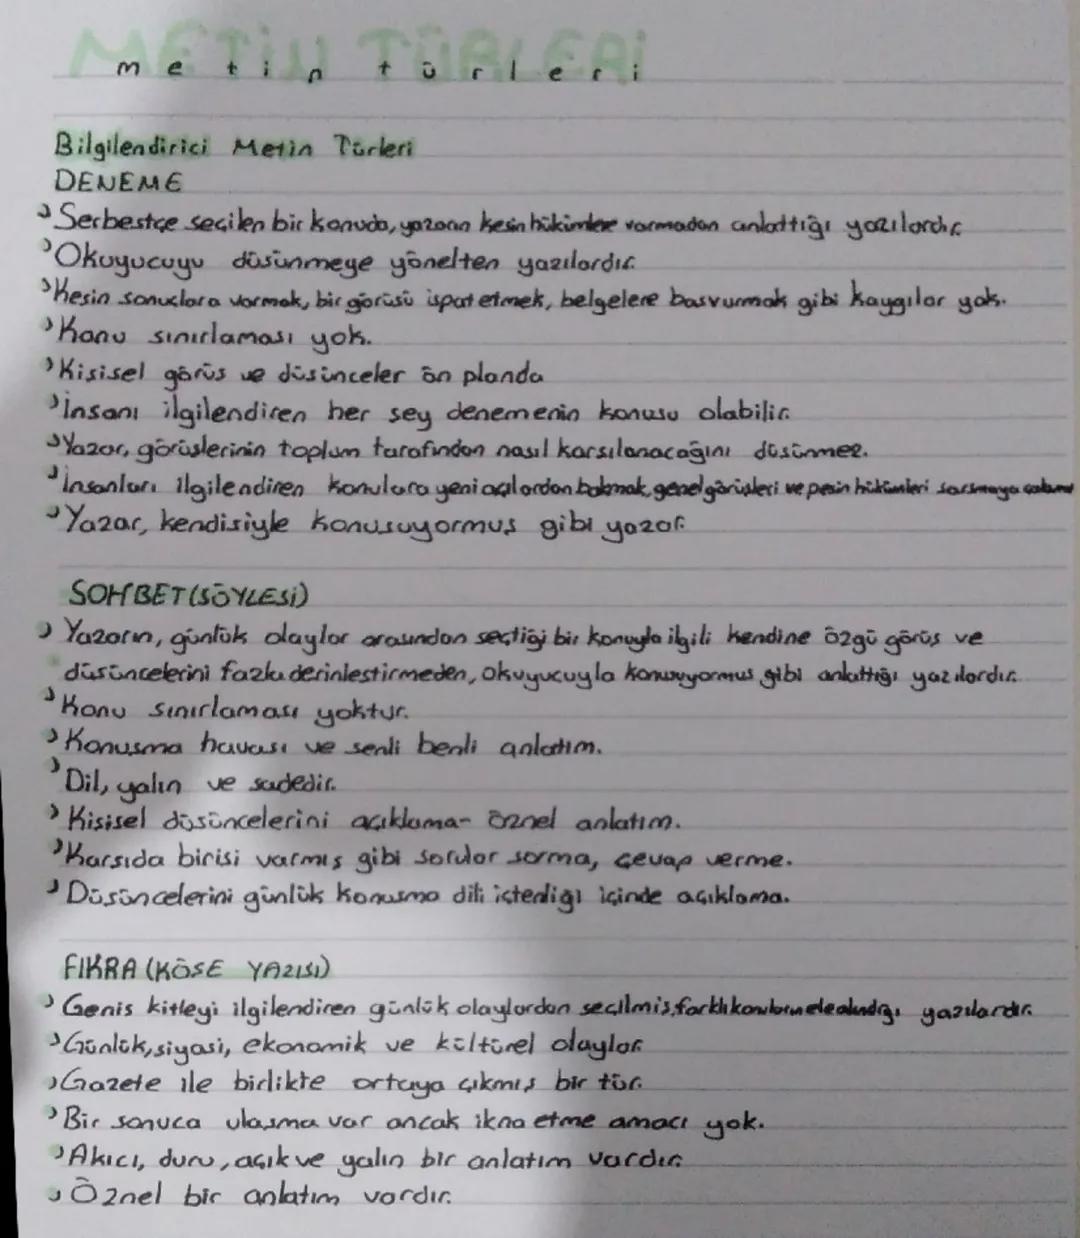 METİN TÜRLERİ
metin türleri
Bilgilendirici Metin Türleri
DENEME
Serbestçe seçilen bir konuda, yazarın kesin hükümlere varmadan anlattığı yazılardır.
Okuyucuyu düşünmeye yönelten yazılardır.
Kesin sonuçlara varmak, bir görüşü ispat etmek, belgelere basvurmak gibi kaygılar yok.
Konu sınırlaması yok.
Kişisel görüs ve düsünceler ön planda
İnsanı ilgilendiren her sey denemenin konusu olabilir.
Yazar, görüslerinin toplum tarafından nasıl karsılanacağını düsünmez.
İnsanları ilgilendiren konulara yeni açılardan bakmak, genel görüşleri ve peşin hükümleri sarsmaya
Yazar, kendisiyle konusuyormuş gibi yazar.
SOHBET (SÖYLESİ)
Yazarın, günlük olaylar arasından seçtiği bir konuyla ilgili kendine özgü görüş ve
düsüncelerini fazla derinlestirmeden, okuyucuyla konusuyormus gibi anlattığı yazılardır.
Konu sınırlaması yoktur.
Konusma havası ve senli benli anlatım.
Dil, yalın ve sadedir.
Kisisel düsüncelerini açıklama- öznel anlatım.
Karsıda birisi varmış gibi sorular sorma, cevap verme.
Düsüncelerini günlük konusma dili içtenliği içinde açıklama.
FIKRA (KÖSE YAZISI)
Genis kitleyi ilgilendiren günlük olaylardan seçilmiş, farklı konuların ele alındığı yazılardır.
Günlük, siyasi, ekonomik ve kültürel olaylar.
Gazete ile birlikte ortaya çıkmış bir tür.
Bir sonuca ulaşma var ancak ikna etme amacı yok.
Akıcı, duru, açık ve yalın bir anlatım vardır.
Öznel bir anlatım vardır.